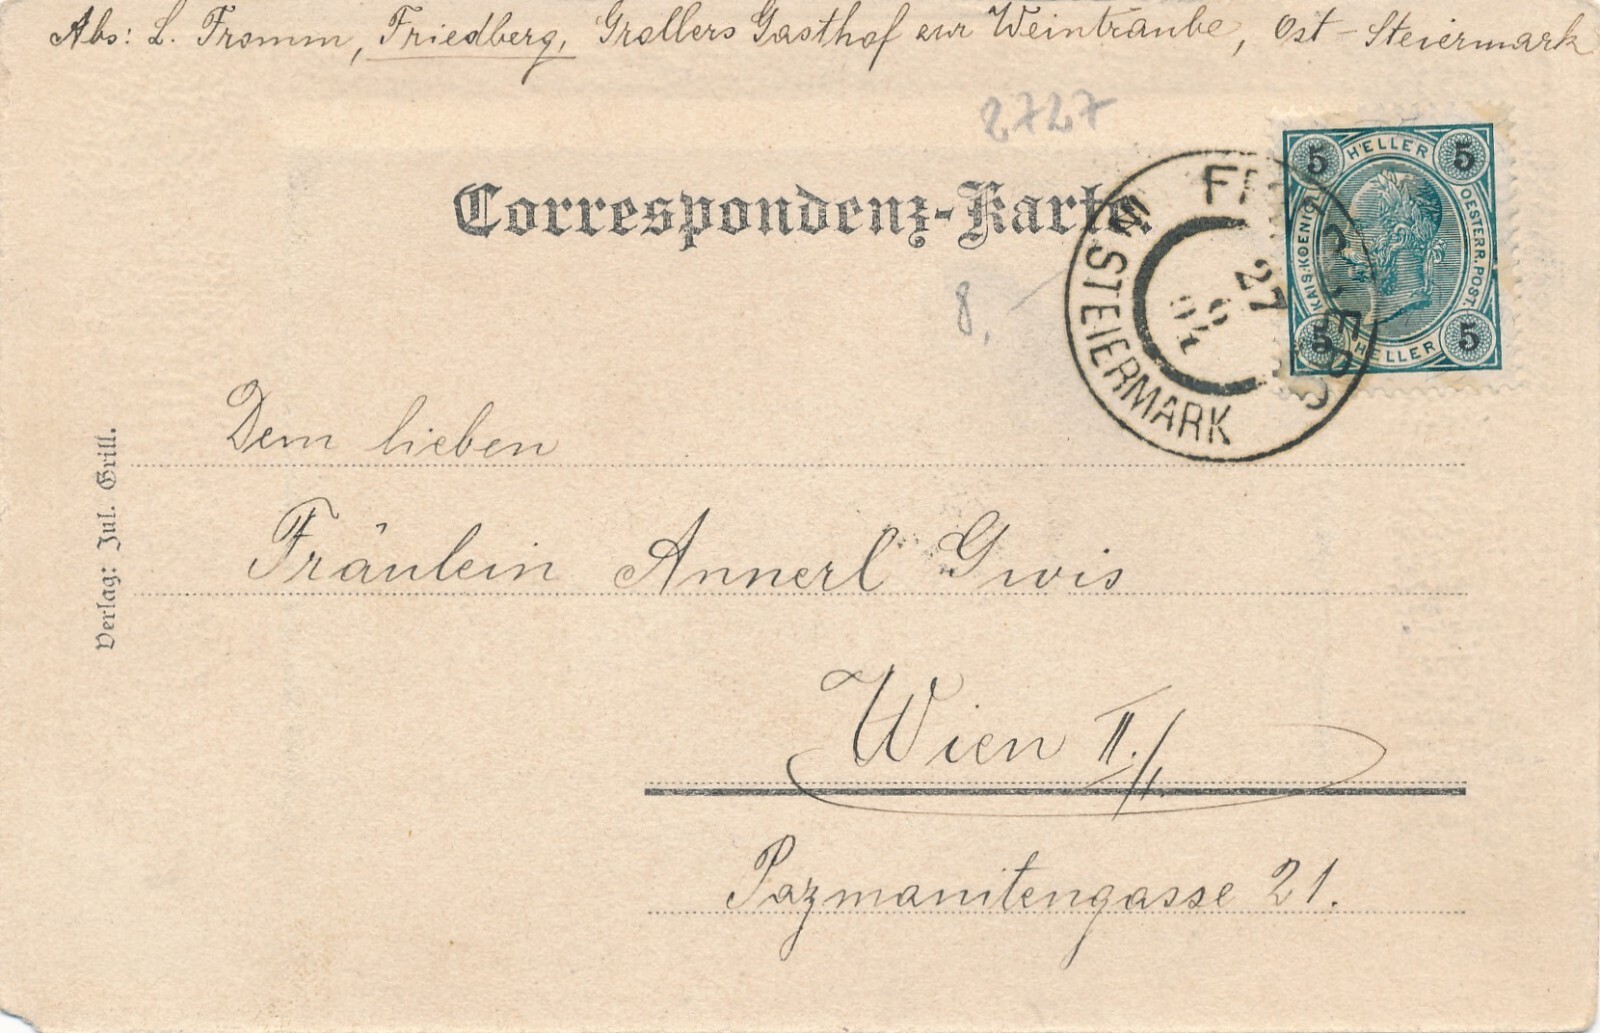 Abs: L. Fromm, Friedberg, Grollers Gasthof zur Weintraube, Ost-Steiermark
2727
Correspondenz-Karte.
5 HELLER 5
KAIS. KOENIGL. OESTERR. POST.
5 HELLER 5
FRIEDBERG
IN STEIERMARK
27
6
04
8.
Dem lieben
Fräulein Annerl Gwis
Wien II./
Pazmanitengasse 21.
Verlag: Jul. Grill.